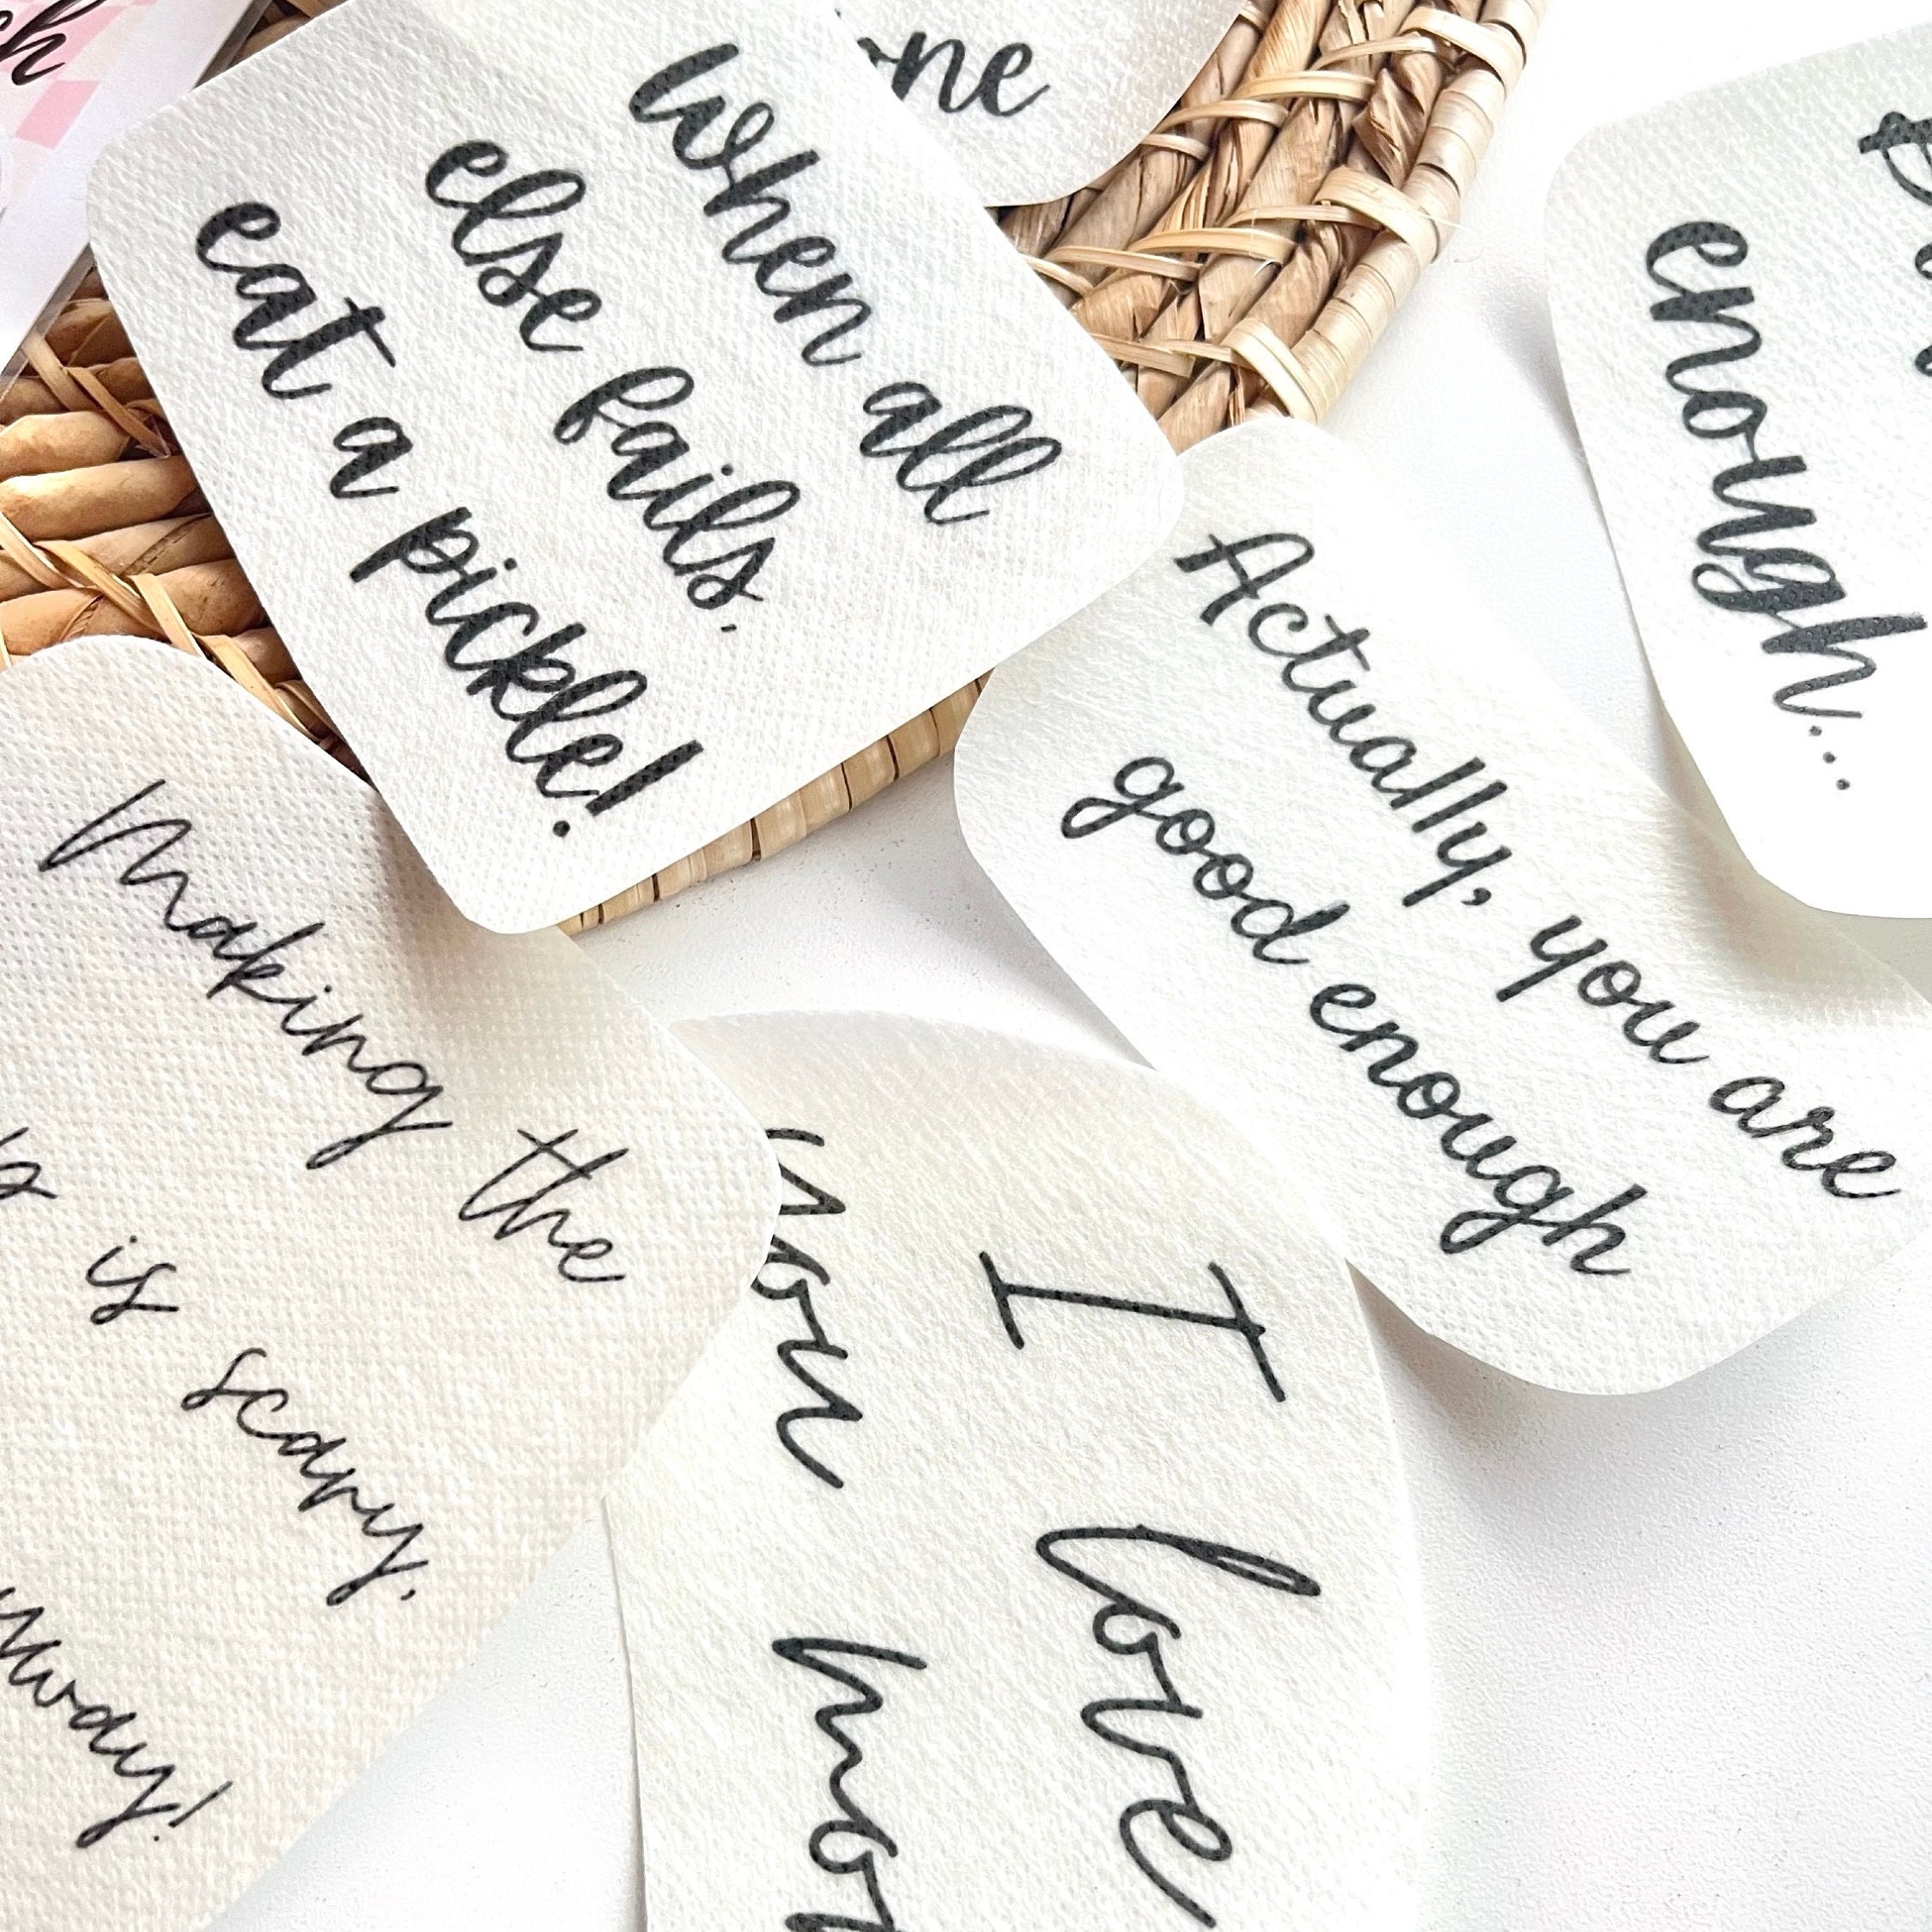 When all
else fails,
eat a pickle!
enough...
Actually, you are
good enough
Making the
is scary,
I love
you